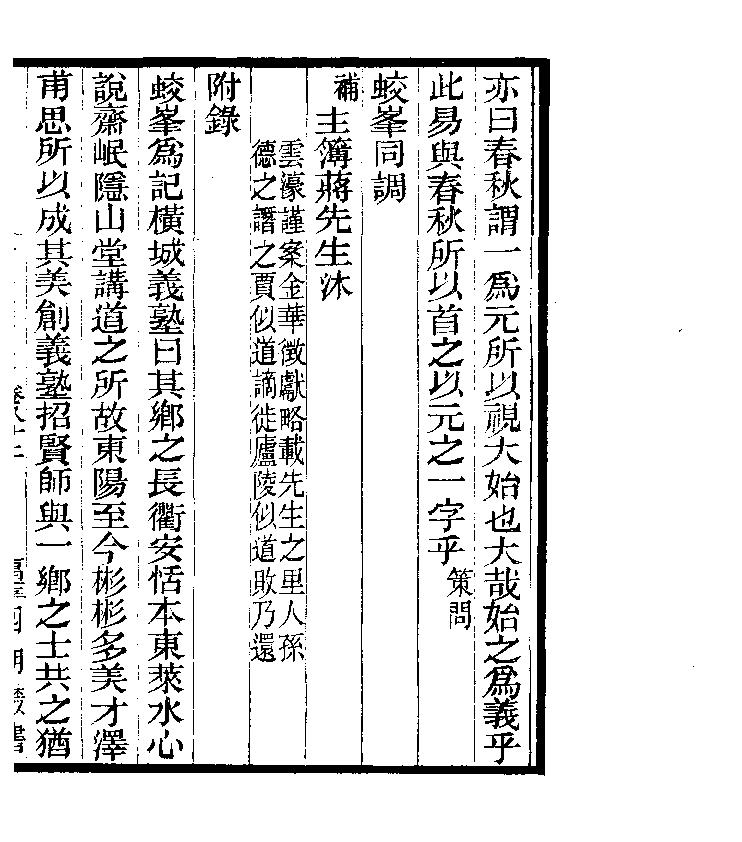 亦曰春秋謂一爲元所以視大始也大哉始之爲義乎
此易與春秋所以首之以元之一字乎策問
蛟峯同調
補主簿蔣先生沐
雲濠謹案金華徵獻略載先生之里人孫
德之譖之賈似道謫徙廬陵似道敗乃還
附錄
蛟峯爲記橫城義塾曰其鄉之長衢安恬本東萊水心
說齋岷隱山堂講道之所故東陽至今彬彬多美才澤
甫思所以成其美創義塾招賢師與一鄉之士共之猶
四明叢書